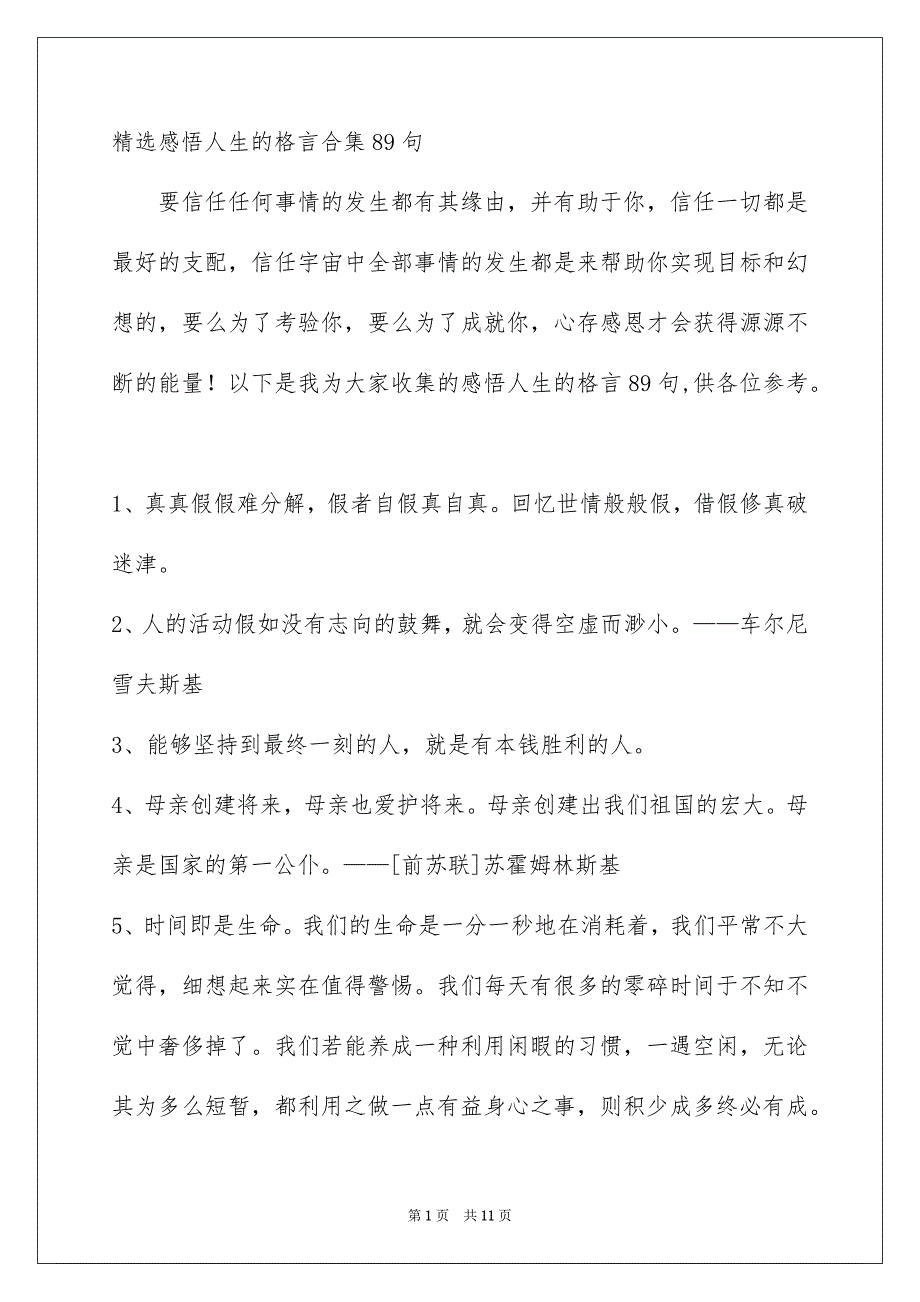 精选感悟人生的格言合集 89 句
要信任任何事情的发生都有其缘由，并有助于你，信任一切都是
最好的支配，信任宇宙中全部事情的发生都是来帮助你实现目标和幻
想的，要么为了考验你，要么为了成就你，心存感恩才会获得源源不
断的能量！以下是我为大家收集的感悟人生的格言 89 句,供各位参考。
1、真真假假难分解，假者自假真自真。回忆世情般般假，借假修真破
迷津。
2、人的活动假如没有志向的鼓舞，就会变得空虚而渺小。——车尔尼
雪夫斯基
3、能够坚持到最终一刻的人，就是有本钱胜利的人。
4、母亲创建将来，母亲也爱护将来。母亲创建出我们祖国的宏大。母
亲是国家的第一公仆。——[前苏联]苏霍姆林斯基
5、时间即是生命。我们的生命是一分一秒地在消耗着，我们平常不大
觉得，细想起来实在值得警惕。我们每天有很多的零碎时间于不知不
觉中奢侈掉了。我们若能养成一种利用闲暇的习惯，一遇空闲，无论
其为多么短暂，都利用之做一点有益身心之事，则积少成多终必有成。
第 1 页 共 11 页